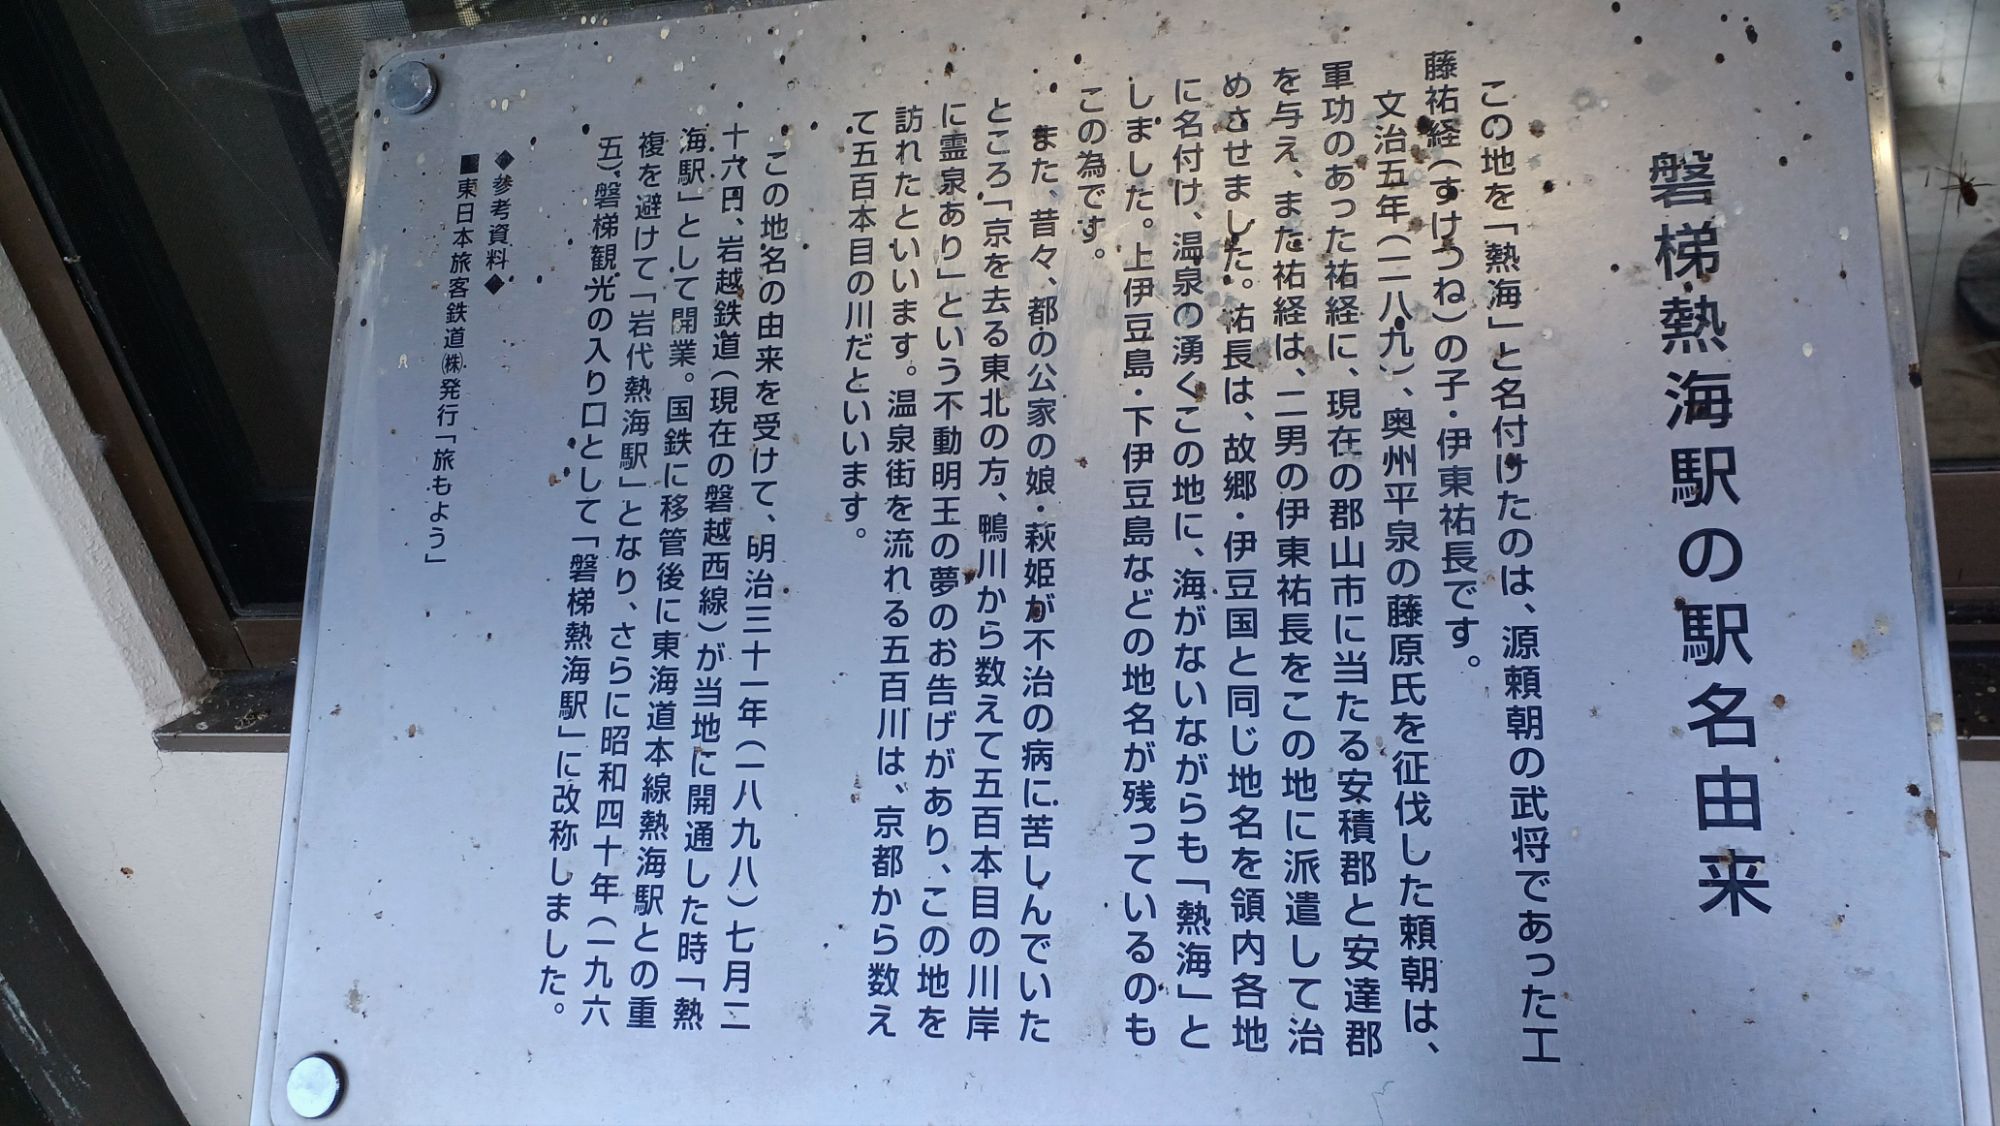 磐梯熱海駅の駅名由来
この地を「熱海」と名付けたのは、源頼朝の武将であった工
藤祐経(すけつね)の子・伊東祐長です。
文治五年(一一八九)、奥州平泉の藤原氏を征伐した頼朝は、
軍功のあった祐経に、現在の郡山市に当たる安積郡と安達郡
を与え、また祐経は、二男の伊東祐長をこの地に派遣して治
めさせました。祐長は、故郷・伊豆国と同じ地名を領内各地
に名付け、温泉の湧くこの地に、海がないながらも「熱海」と
しました。上伊豆島・下伊豆島などの地名が残っているのも
この為です。
また、昔々、都の公家の娘・萩姫が不治の病に苦しんでいた
ところ「京を去る東北の方、鴨川から数えて五百本目の川岸
に霊泉あり」という不動明王の夢のお告げがあり、この地を
訪れたといいます。温泉街を流れる五百川は、京都から数え
て五百本目の川だといいます。
この地名の由来を受けて、明治三十一年(一八九八)七月二
十六日、岩越鉄道(現在の磐越西線)が当地に開通した時「熱
海駅」として開業。国鉄に移管後に東海道本線熱海駅との重
複を避けて「岩代熱海駅」となり、さらに昭和四十年(一九六
五)、磐梯観光の入り口として「磐梯熱海駅」に改称しました。
◆参考資料◆
■東日本旅客鉄道㈱発行「旅もよう」